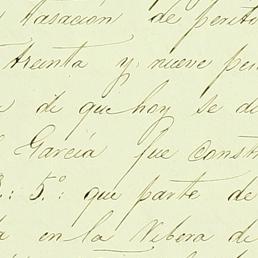 tasación de perito
treinta y nueve pe
de que hoy se di
García fue constr
: 5.º: que parte de
en la Vibora de